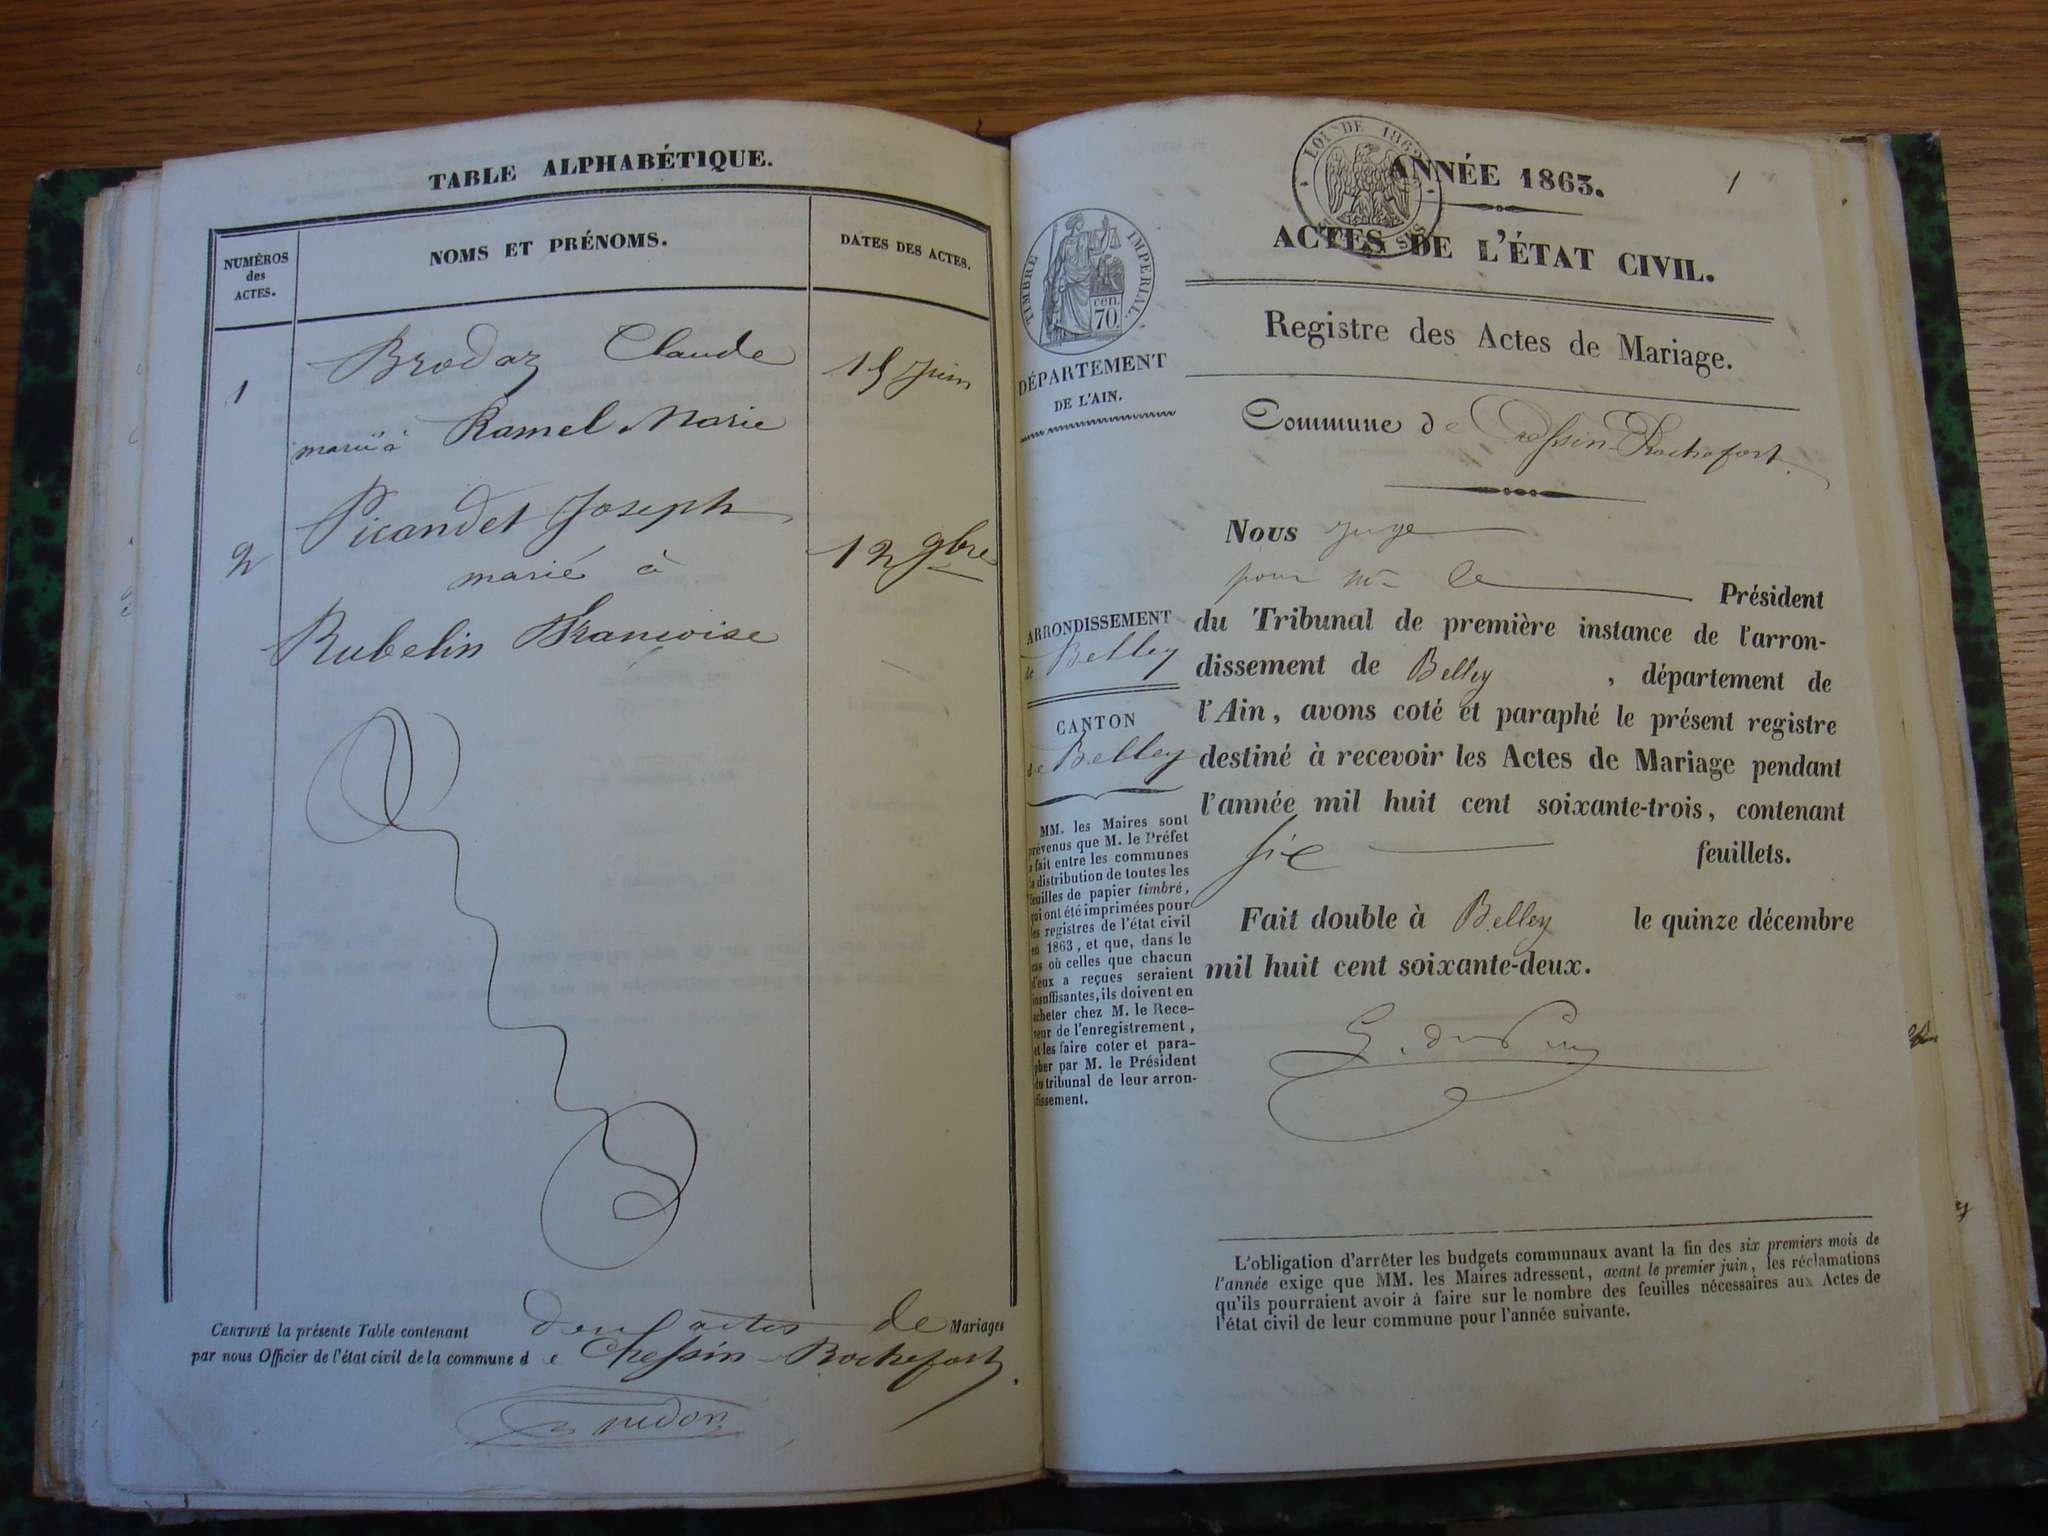 TABLE ALPHABÉTIQUE.
NUMÉROS
des
ACTES.
NOMS ET PRÉNOMS.
DATES DES ACTES.
Brodaz Claude
1
15 Juin
marié à Ramel Marie
Picandet Joseph
2
marié à
12 9bre
Rubelin Francoise
CERTIFIÉ la présente Table contenant deux actes de Mariages
par nous Officier de l'état civil de la commune de Cressin-Rochefort.
LOI DE 1862
ANNÉE 1863.
1
ACTES DE L'ÉTAT CIVIL.
TIMBRE IMPERIAL.
cen.
70.
DÉPARTEMENT
DE L'AIN.
Registre des Actes de Mariage.
Commune de Cressin-Rochefort.
Nous juge
pour Mr le Président
du Tribunal de première instance de l'arron-
dissement de Belley, département de
l'Ain, avons coté et paraphé le présent registre
destiné à recevoir les Actes de Mariage pendant
l'année mil huit cent soixante-trois, contenant
six feuillets.
Fait double à Belley le quinze décembre
mil huit cent soixante-deux.
ARRONDISSEMENT
de Belley
CANTON
de Belley
MM. les Maires sont
prévenus que M. le Préfet
a fait entre les communes
la distribution de toutes les
feuilles de papier timbré,
qui ont été imprimées pour
les registres de l'état civil
en 1863, et que, dans le
cas où celles que chacun
d'eux a reçues seraient
insuffisantes, ils doivent en
acheter chez M. le Rece-
veur de l'enregistrement,
et les faire coter et para-
pher par M. le Président
du tribunal de leur arron-
dissement.
L'obligation d'arrêter les budgets communaux avant la fin des six premiers mois de
l'année exige que MM. les Maires adressent, avant le premier juin, les réclamations
qu'ils pourraient avoir à faire sur le nombre des feuilles nécessaires aux Actes de
l'état civil de leur commune pour l'année suivante.